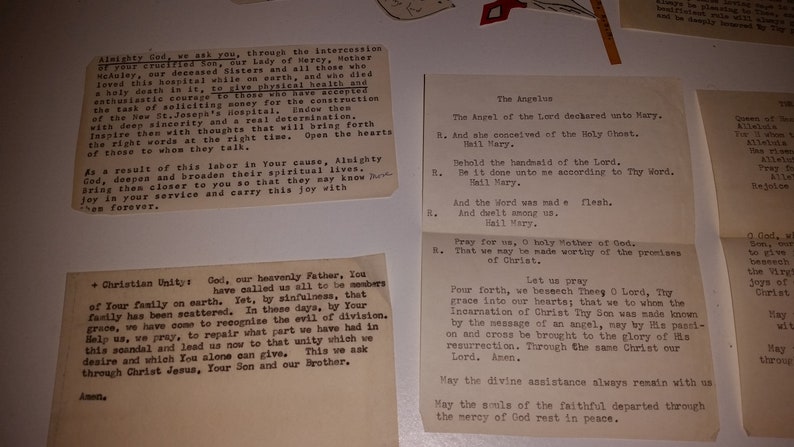 Almighty God, we ask you, through the intercession
of your crucified Son, our Lady of Mercy, Mother
McAuley, our deceased Sisters and all those who
loved this hospital while on earth, and who died
a holy death in it, to give physical health and
enthusiastic courage to those who have accepted
the task of soliciting money for the construction
of the New St.Joseph's Hospital. Endow them
with deep sincerity and a real determination.
Inspire them with thoughts that will bring forth
the right words at the right time. Open the hearts
of those to whom they talk.
As a result of this labor in Your cause, Almighty
God, deepen and broaden their spiritual lives.
Bring them closer to you so that they may know more
joy in your service and carry this joy with
them forever.
+ Christian Unity: God, our heavenly Father, You
have called us all to be members
of Your family on earth. Yet, by sinfulness, that
family has been scattered. In these days, by Your
grace, we have come to recognize the evil of division.
Help us, we pray, to repair what part we have had in
this scandal and lead us now to that unity which we
desire and which You alone can give. This we ask
through Christ Jesus, Your Son and our Brother.
Amen.
The Angelus
The Angel of the Lord declared unto Mary.
R. And she conceived of the Holy Ghost.
Hail Mary.
Behold the handmaid of the Lord.
R. Be it done unto me according to Thy Word.
Hail Mary.
And the Word was mad e flesh.
R. And dwelt among us.
Hail Mary.
Pray for us, O holy Mother of God.
R. That we may be made worthy of the promises
of Christ.
Let us pray
Pour forth, we beseech Thee, O Lord, Thy
grace into our hearts; that we to whom the
Incarnation of Christ Thy Son was made known
by the message of an angel, may by His passi-
on and cross be brought to the glory of His
resurrection. Through the same Christ our
Lord. Amen.
May the divine assistance always remain with us
May the souls of the faithful departed through
the mercy of God rest in peace.
always be pleasing to Thee, and
benificient rule will always
and be deeply honored By Thy
Queen of Hea
Alleluia
For H whom t
Alleluia
Has risen
Allelu
Pray fo
Alle
Rejoice
O God, w
Son, our
to give
beseech
the Virgi
joys of
Christ
May
wit
May t
throug